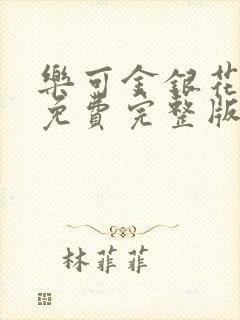 樂可金銀花
免費完整版
林菲菲